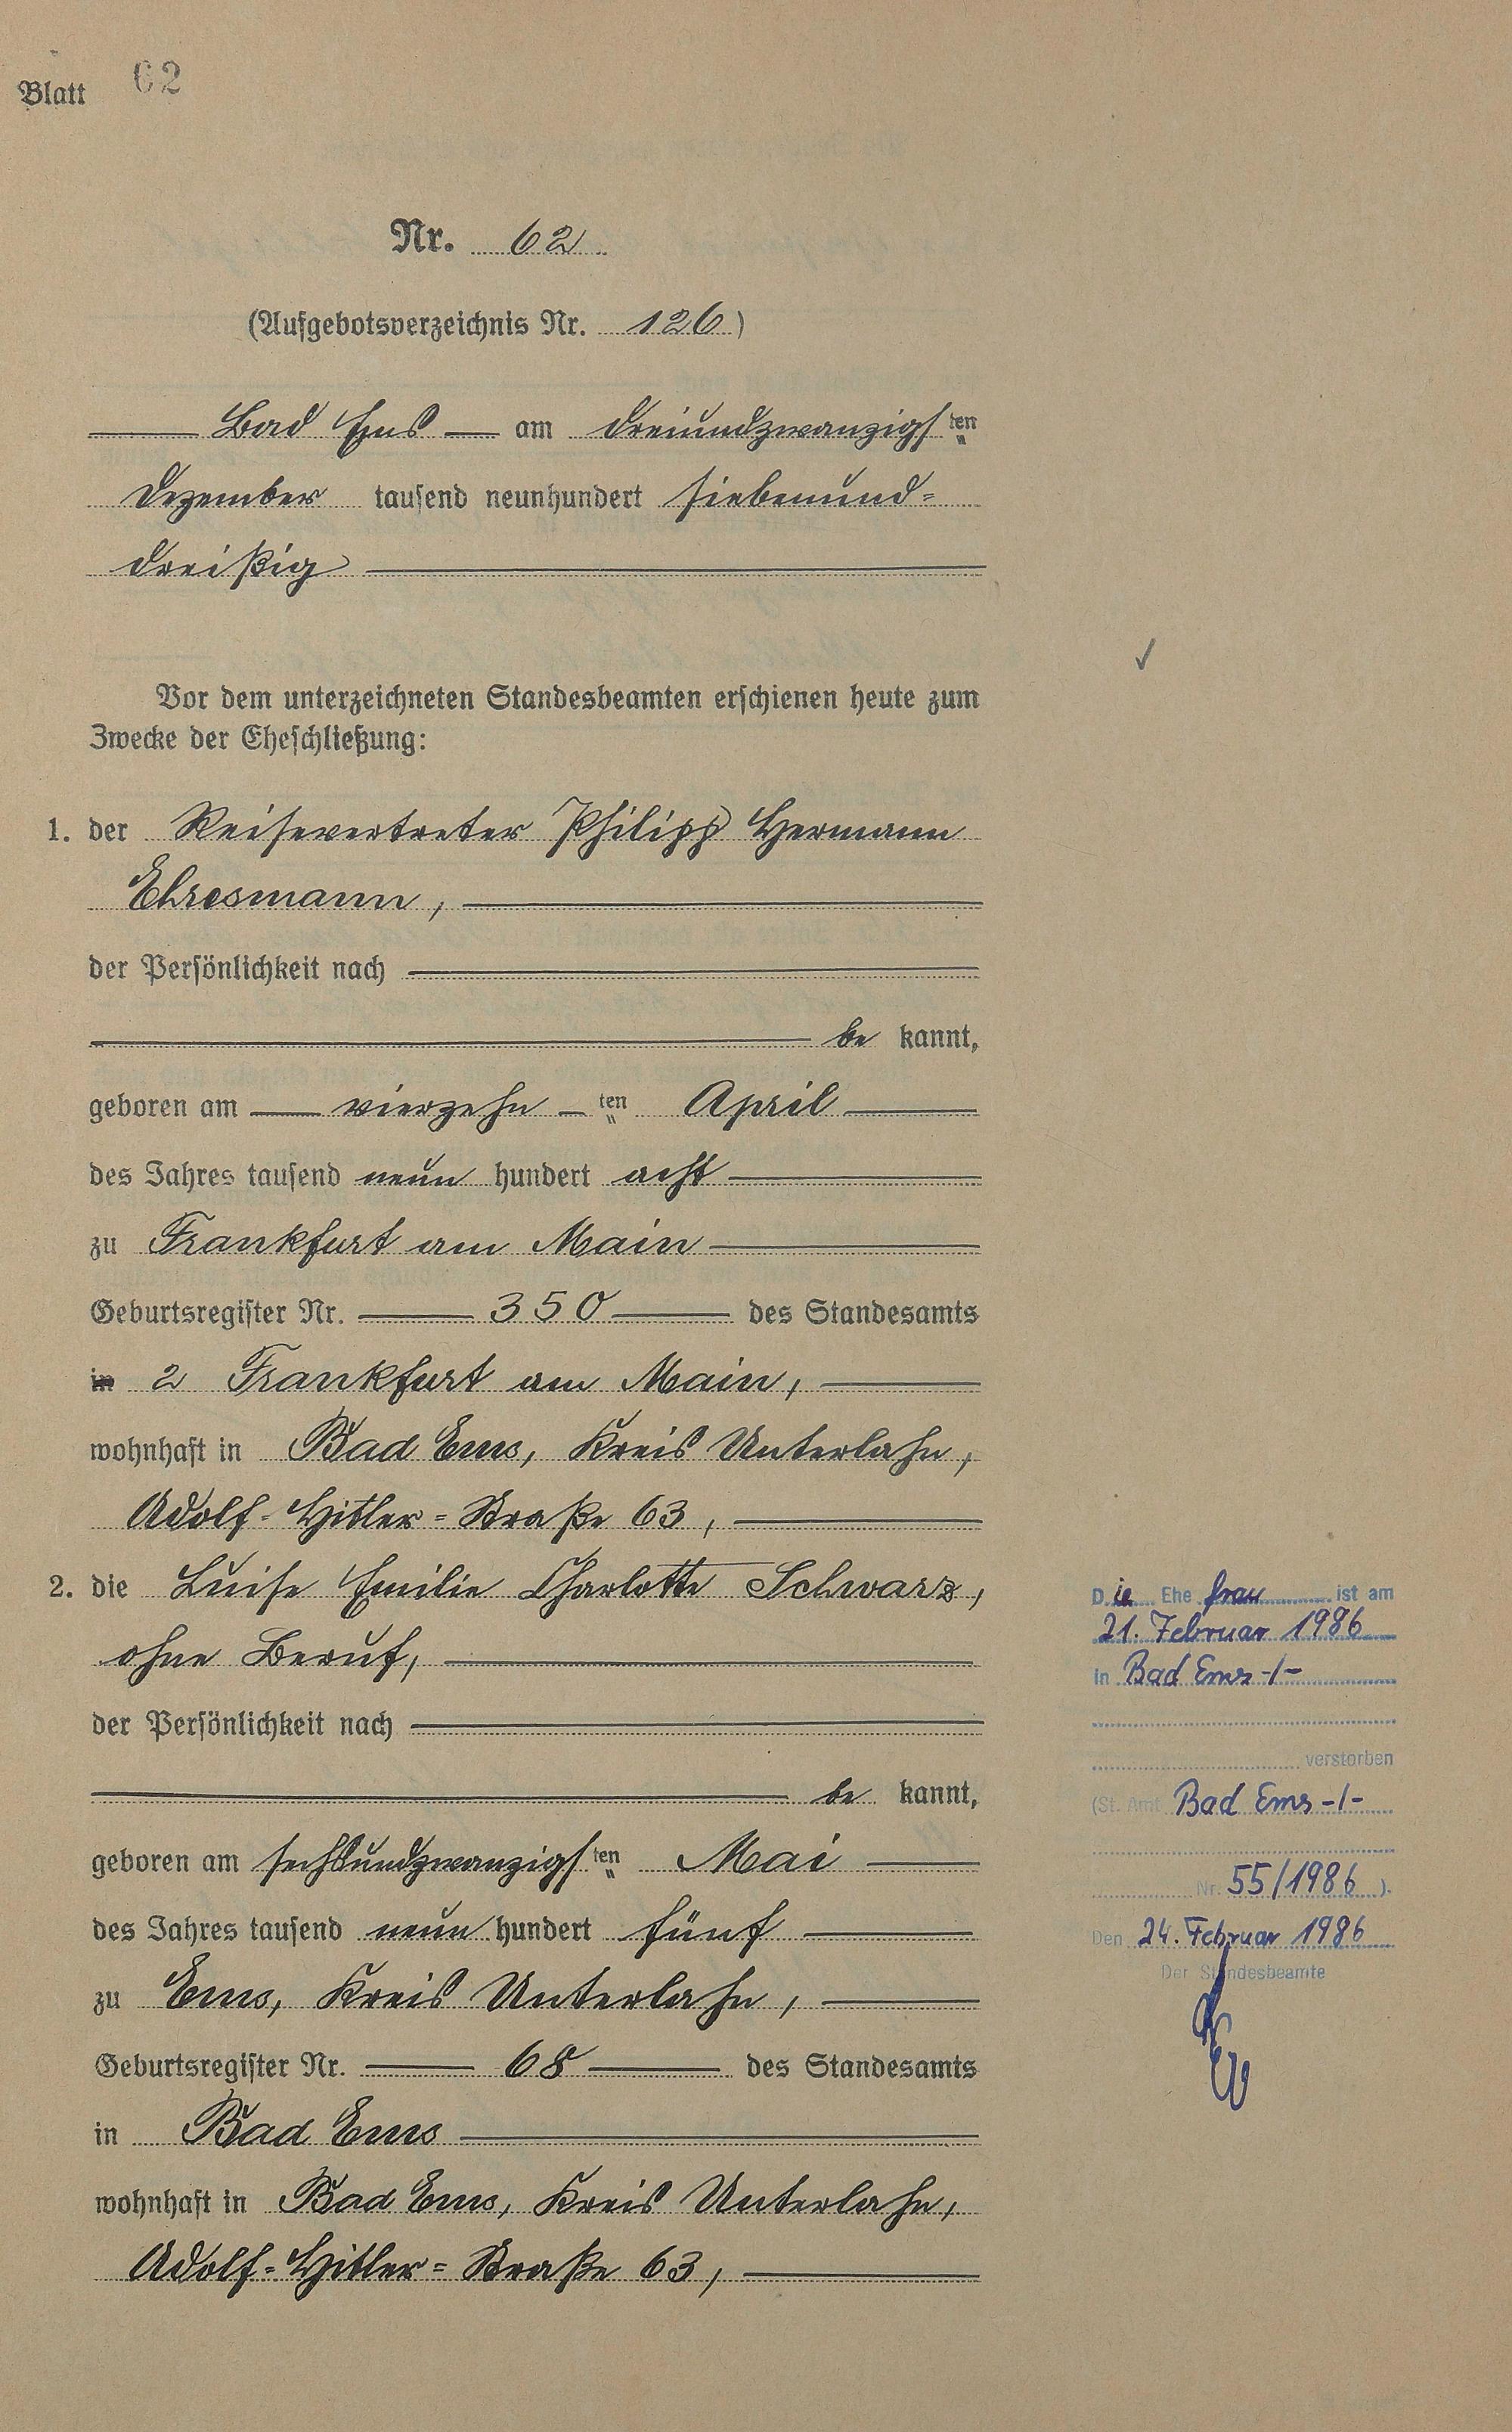 Blatt 62
Nr. 62
(Aufgebotsverzeichnis Nr. 126)
Bad Ems am dreiundzwanzigsten
Dezember tausend neunhundert siebenund=
dreißig
Vor dem unterzeichneten Standesbeamten erschienen heute zum
Zwecke der Eheschließung:
1. der Reisevertreter Philipp Hermann
Ehresmann,
der Persönlichkeit nach
be kannt,
geboren am vierzehn ten April
des Jahres tausend neun hundert acht
zu Frankfurt am Main
Geburtsregister Nr. 350 des Standesamts
in 2 Frankfurt am Main,
wohnhaft in Bad Ems, Kreis Unterlahn,
Adolf-Hitler=Straße 63,
2. die Luise Emilie Charlotte Schwarz,
ohne Beruf,
der Persönlichkeit nach
be kannt,
geboren am sechsundzwanzigsten Mai
des Jahres tausend neun hundert fünf
zu Ems, Kreis Unterlahn,
Geburtsregister Nr. 68 des Standesamts
in Bad Ems
wohnhaft in Bad Ems, Kreis Unterlahn,
Adolf=Hitler=Straße 63,
Die Ehe frau ist am
21. Februar 1986
in Bad Ems -/-
verstorben
(St. Amt Bad Ems -/-
Nr. 55/1986 ).
Den 24. Februar 1986
Der Standesbeamte